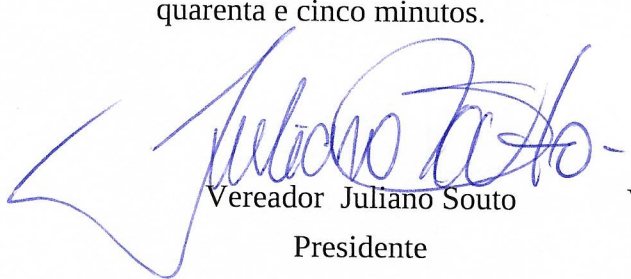 quarenta e cinco minutos.
Juliano Souto
Vereador Juliano Souto
Presidente